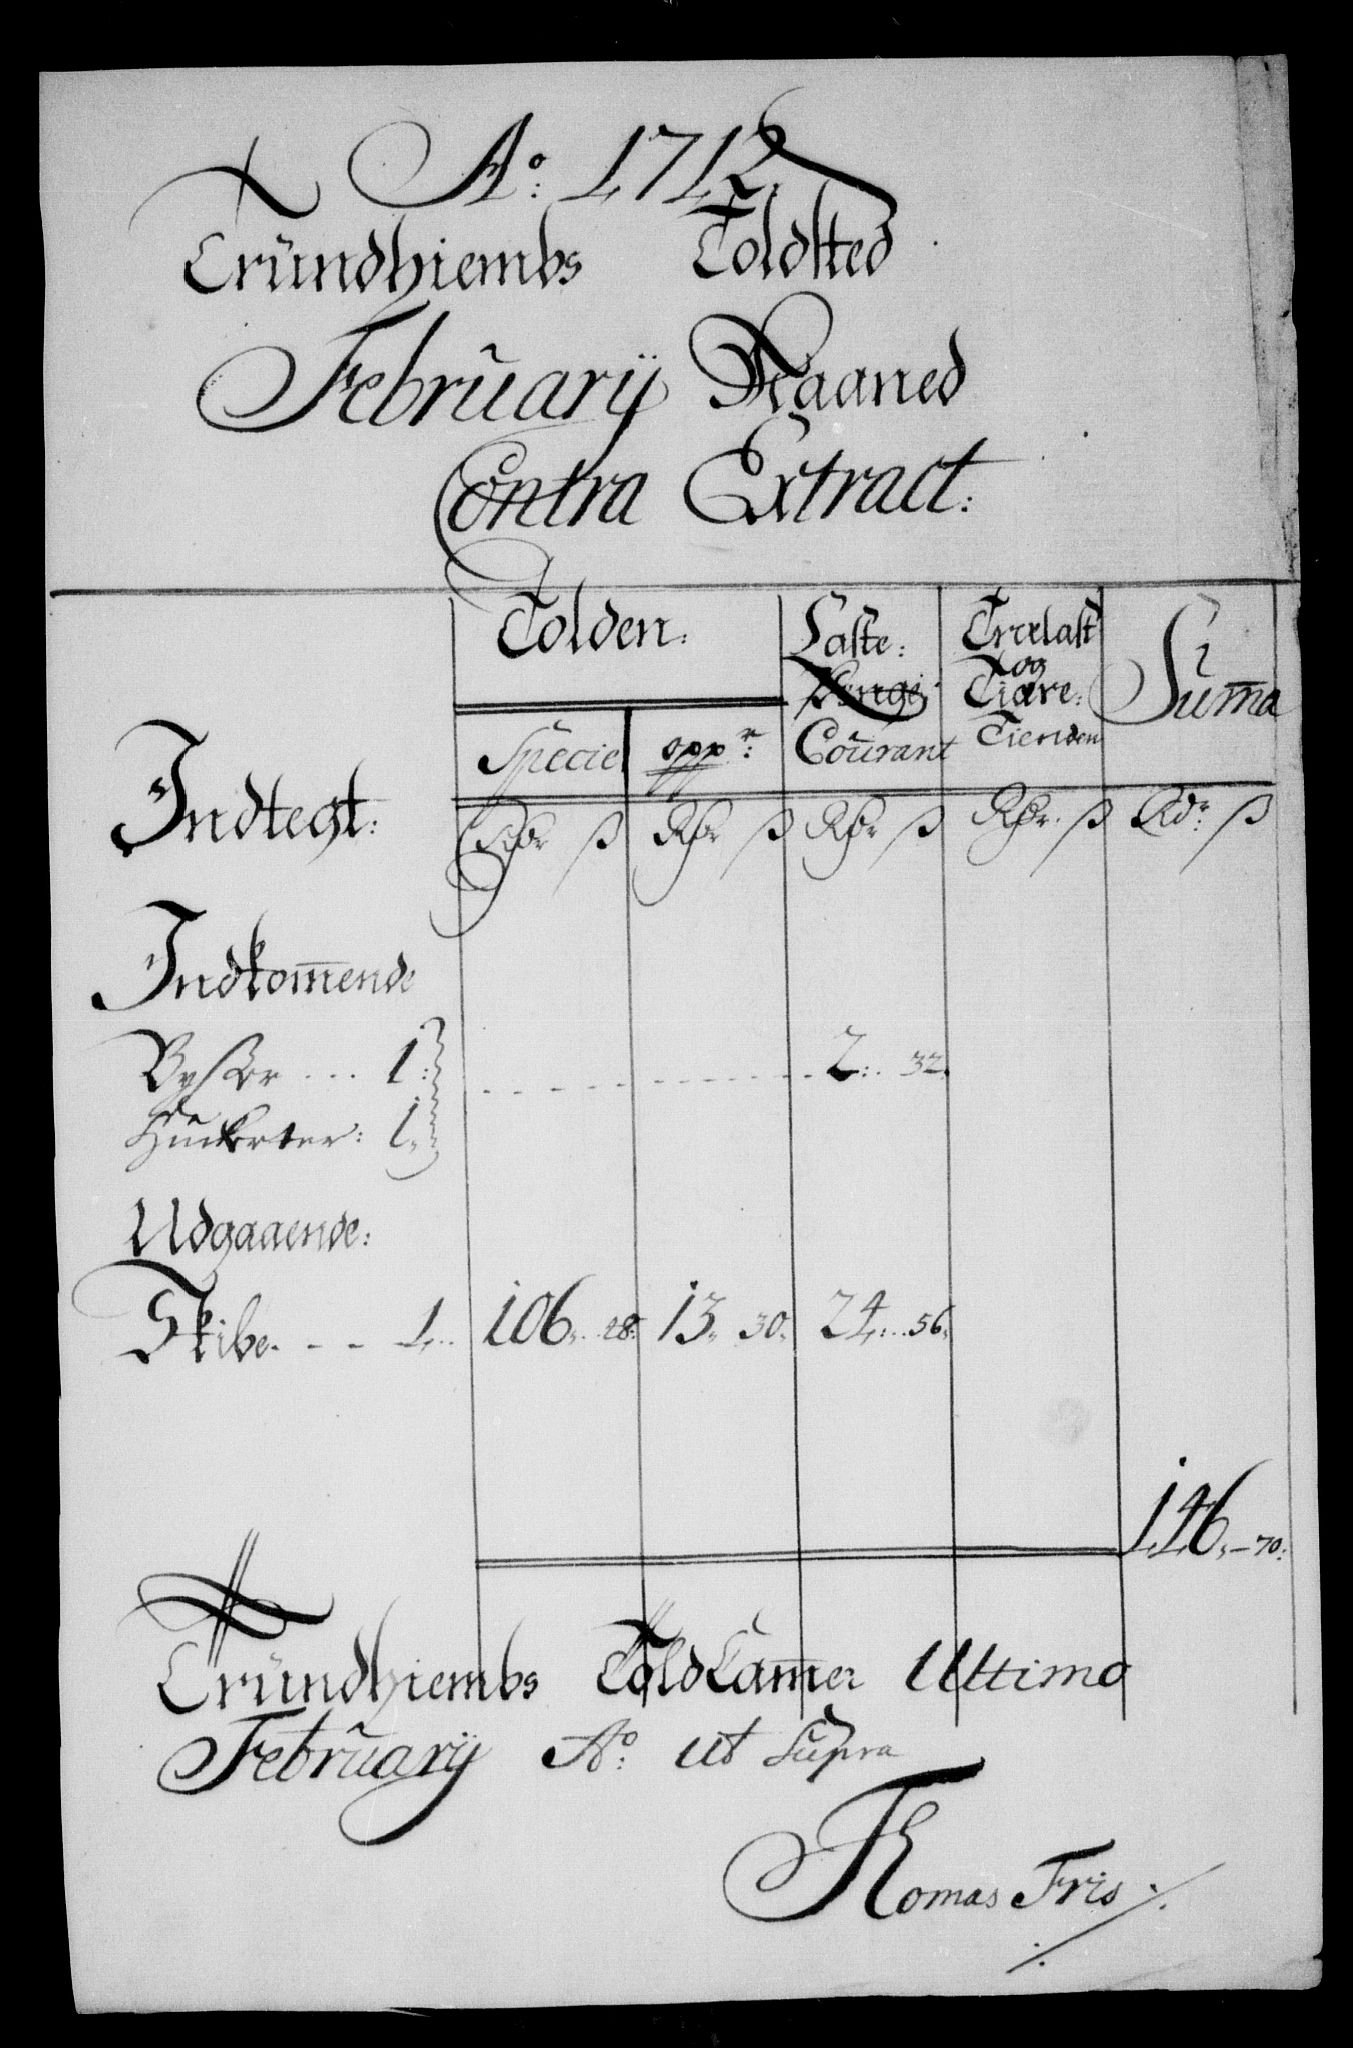 Ao: 1712.
Tründhiembs Toldsted
Februarij Maaned
Contra Extract:
Tolden: Laste: Trælast Suma
Penge og
Tiære:
Specie oppr: Courant Tienden
Indtegt: Rdr ß Rdr ß Rdr ß Rdr. ß Rdr ß
Indkomende
1: 2: 32.
Huckerter: 1.
Udgaaende:
Skibe. - - 1. 106. 28: 13. 30. 24: 56.
146.-70:
Tründhiembs ToldCamer Ultimo
Februarij Ao: ut Supra
Thomas Fris